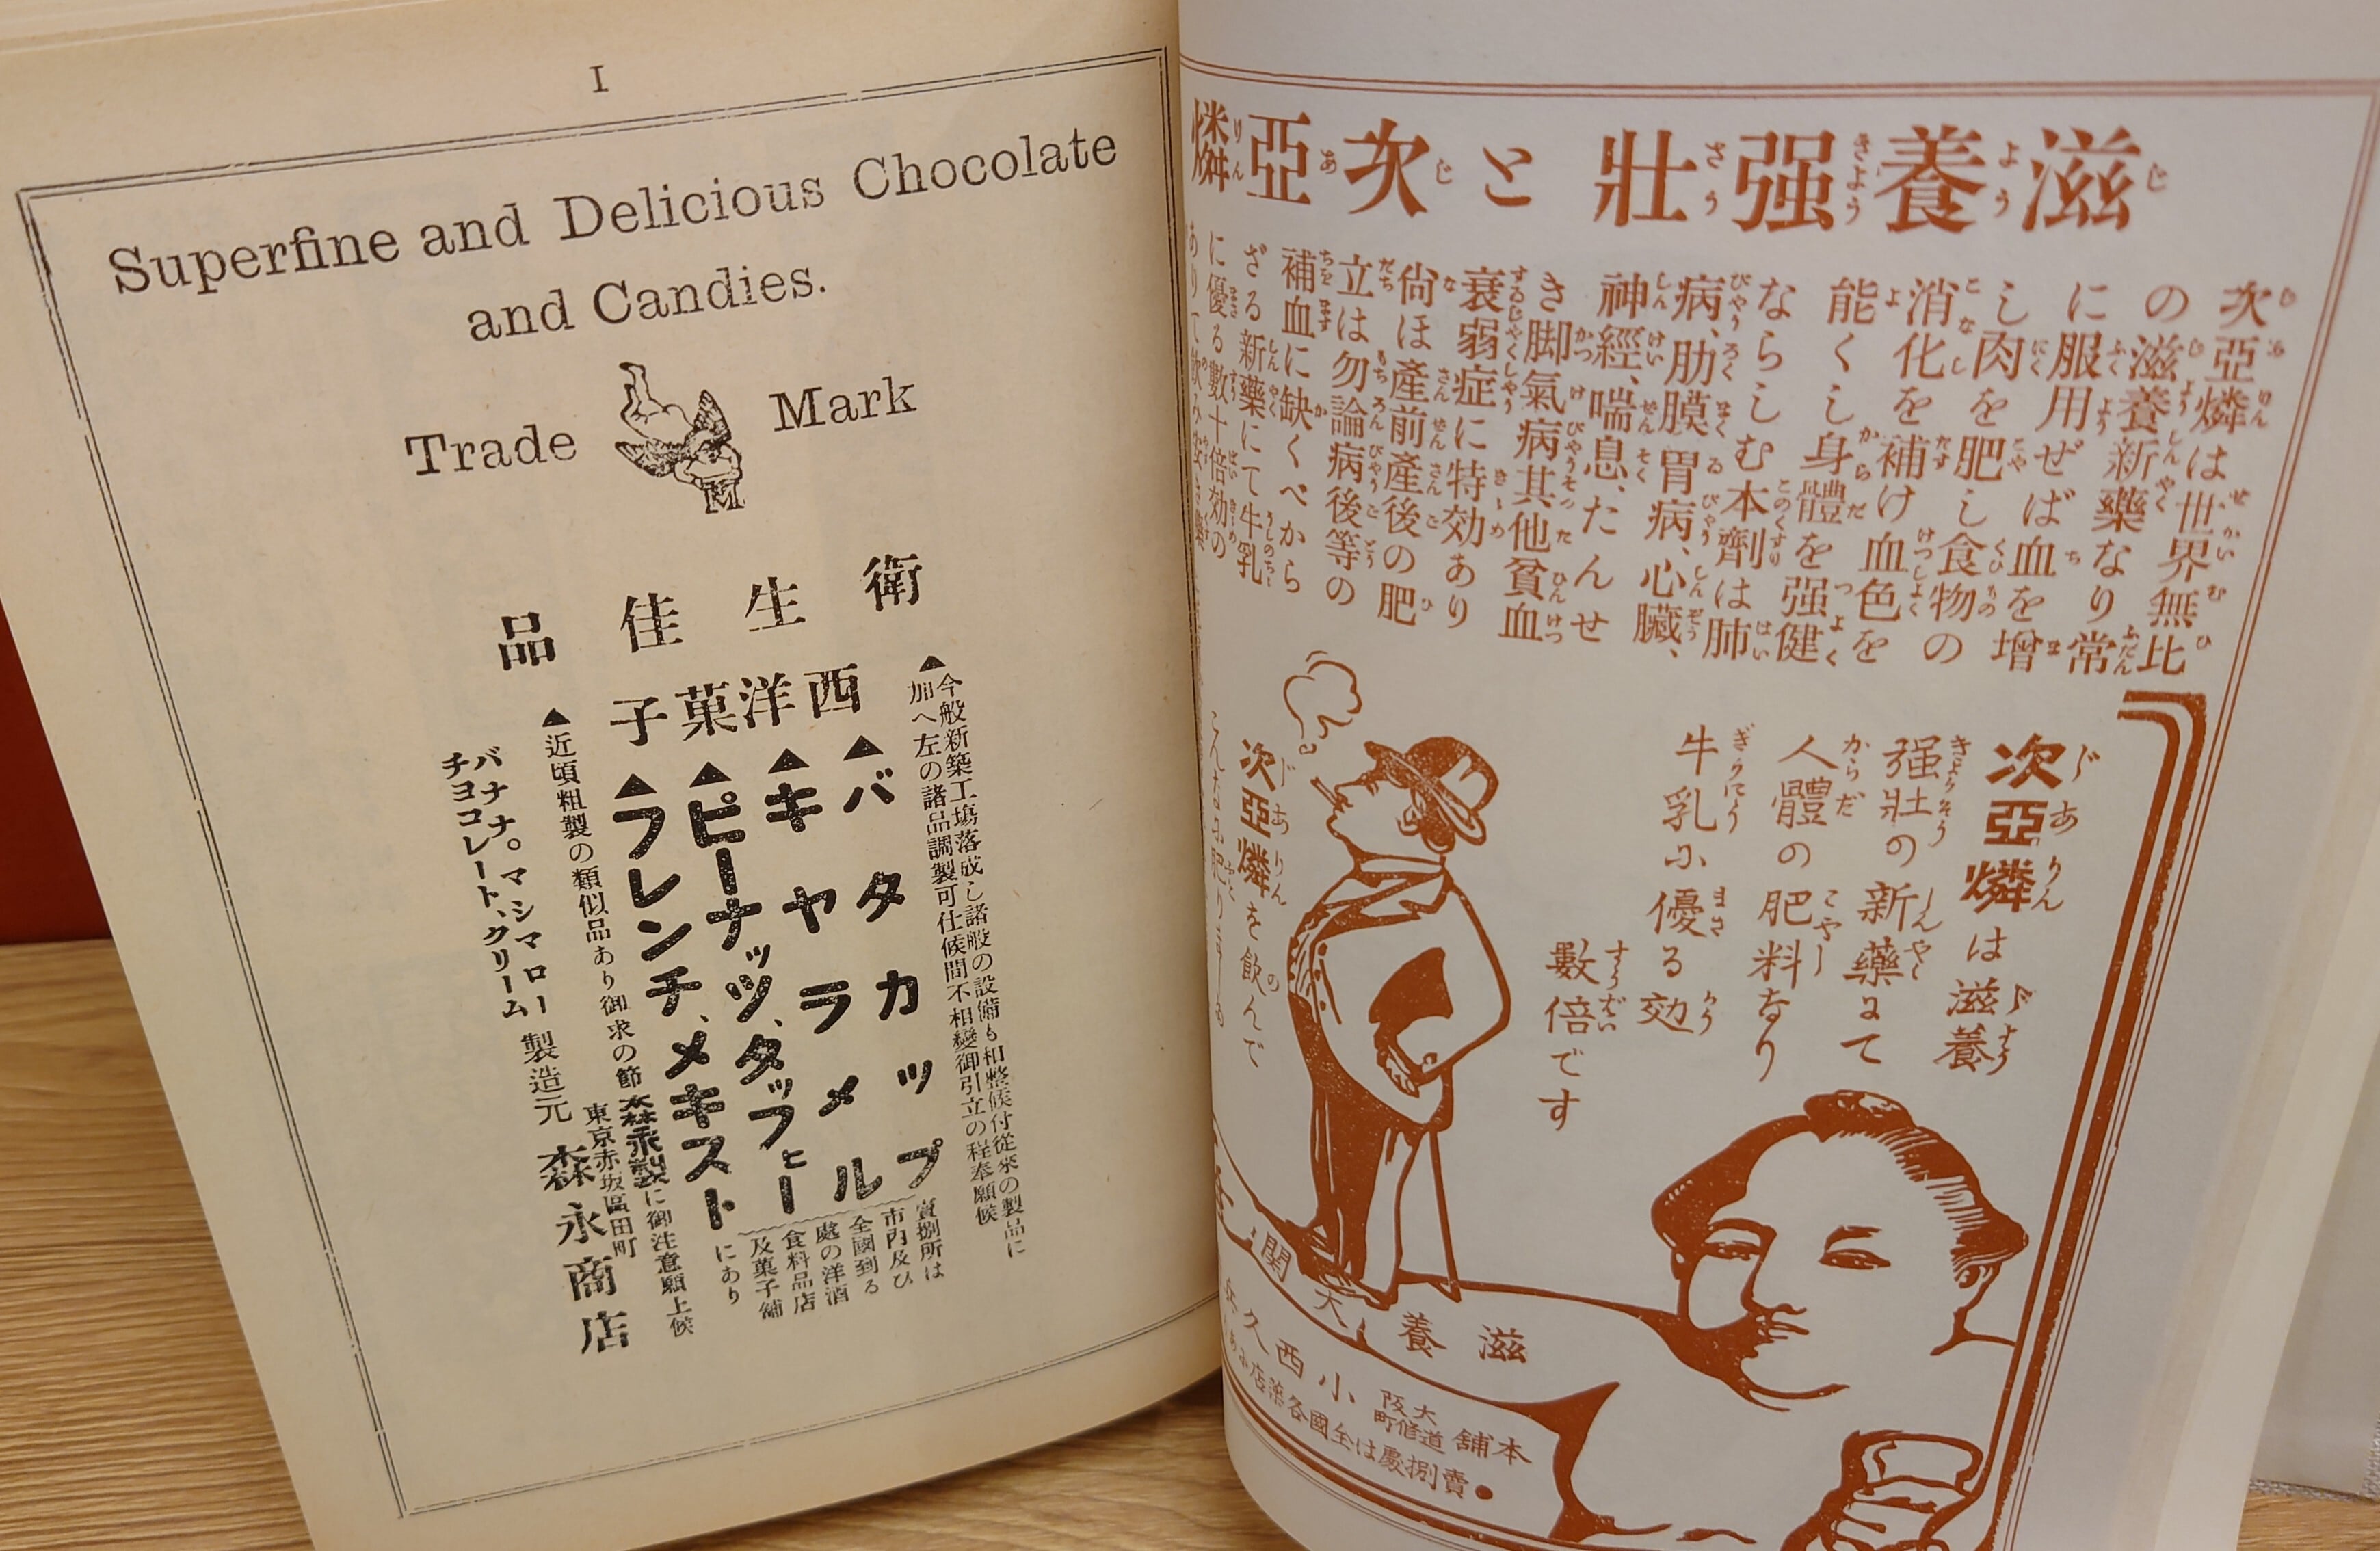 I
Superfine and Delicious Chocolate
and Candies.
Trade Mark
M
衛生佳品
▲今般新築工塲落成し諸般の設備も相整候付從來の製品に
加へ左の諸品調製可仕候間不相變御引立の程奉願候
西洋菓子
▲バタカップ
▲キヤラメル
▲ピーナッツ、タッフヒー
▲フレンチ、メキスト
賣捌所は
市內及ひ
全國到る
處の洋酒
食料品店
及菓子舖
にあり
▲近頃粗製の類似品あり御求の節森永製に御注意願上候
バナナ。マシマロー
チヨコレート、クリーム
製造元
東京赤坂區田町
森永商店
滋養强壯と次亞燐
次亞燐は世界無比
の滋養新藥なり常
に服用せば血を增
し肉を肥し食物の
消化を補け血色を
能くし身體を强健
ならしむ本劑は肺
病、肋膜胃病、心臟、
神經、喘息、たんせ
き脚氣病其他貧血
衰弱症に特効あり
尙ほ產前產後の肥
立は勿論病後等の
補血に缺くべから
ざる新藥にて牛乳
に優る數十倍効の
ありて飮み安き藥
次亞燐は滋養
强壯の新藥にて
人體の肥料なり
牛乳に優る効
數倍です
次亞燐を飮んで
こんなに肥りました
滋養大關
本舖
大阪
道修町
小西久
●賣捌處は全國各藥店